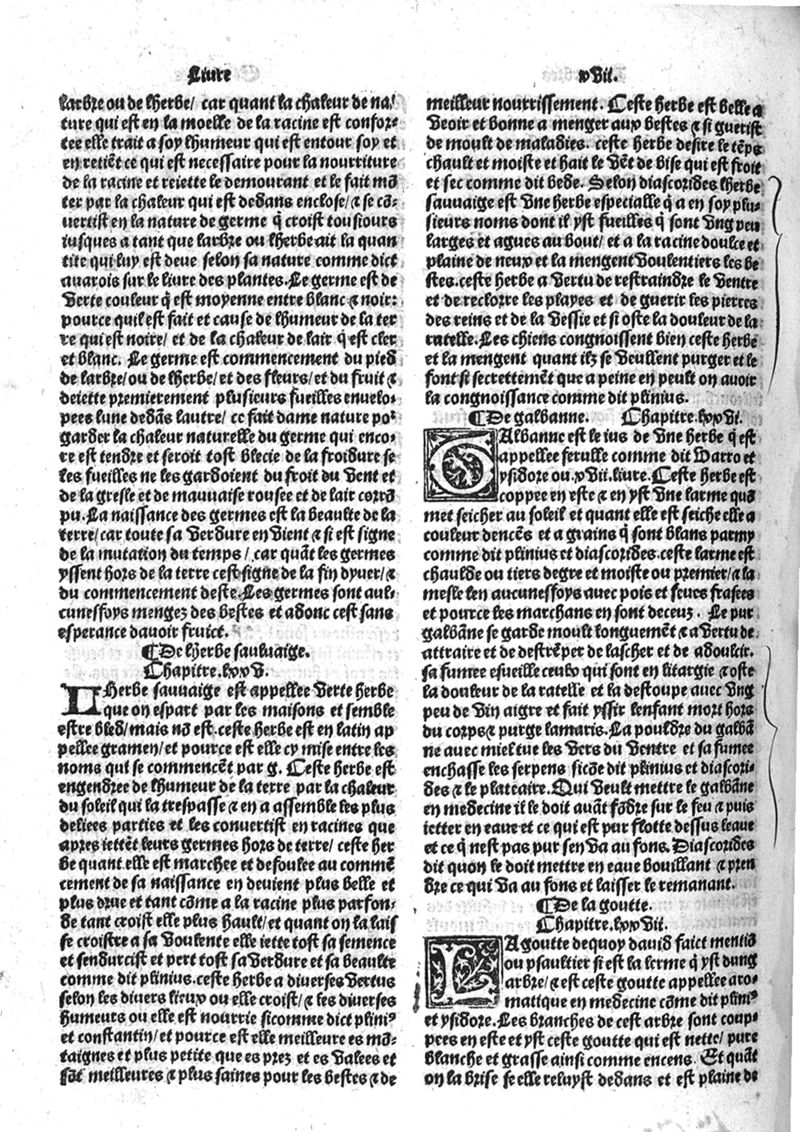 Liure
larbre ou de lherbe/ car quant la chaleur de na/
ture qui est en la moelle de la racine est confor-
tee elle trait a soy lhumeur qui est entour soy et
en retiẽt ce qui est necessaire pour la nourriture
de la racine et reiette le demourant et le fait mõ
ter par la chaleur qui est dedans enclose/ ⁊ se cõ-
uertist en la nature de germe q̃ croist tousiours
iusques a tant que larbre ou lherbe ait la quan
tite qui luy est deue selon sa nature comme dict
auarois sur le liure des plantes. Le germe est de
verte couleur q̃ est moyenne entre blanc ⁊ noir:
pource quil est fait et cause de lhumeur de la ter
re qui est noire/ et de la chaleur de lair q̃ est cler
et blanc. Le germe est commencement du pied
de larbre/ ou de lherbe/ et des fleurs/ et du fruit ⁊
deiette premierement plusieurs fueilles enuelo-
pees lune dedãs lautre/ ce fait dame nature poꝰ
garder la chaleur naturelle du germe qui enco-
re est tendre et seroit tost blecie de la froidure se
les fueilles ne les gardoient du froit du vent et
de la gresle et de mauuaise rousee et de lair corrõ
pu. La naissance des germes est la beaulte de la
terre/ car toute sa verdure en vient ⁊ si est signe
de la mutation du temps/ car quãt les germes
yssent hors de la terre cest signe de la fin dyuer/ ⁊
du commencement deste. Les germes sont aul-
cunesfoys mengez des bestes et adonc cest sans
esperance dauoir fruict.
¶ De lherbe sauluaige.
Chapitre.lxxv.
LHerbe sauuaige est appellee verte herbe
que on espart par les maisons et semble
estre bled/ mais nõ est. ceste herbe est en latin ap
pellee gramen/ et pource est elle cy mise entre les
noms qui se commencẽt par g. Ceste herbe est
engendree de lhumeur de la terre par la chaleur
du soleil qui la trespasse ⁊ en a assemble les plus
deliees parties et les conuertist en racines que
apres iettẽt leurs germes hors de terre/ ceste her
be quant elle est marchee et defoulee au commẽ
cement de sa naissance en deuient plus belle et
plus drue et tant cõme a la racine plus parfon-
de tant croist elle plus hault/ et quant on la lais
se croistre a sa voulente elle iette tost sa semence
et sendurcist et pert tost sa verdure et sa beaulte
comme dit plinius. ceste herbe a diuerses vertus
selon les diuers lieux ou elle croist/ ⁊ les diuerses
humeurs ou elle est nourrie sicomme dict pliniꝰ
et constantin/ et pource est elle meilleure es mõ-
taignes et plus petite que es prez et es valees et
sõt meilleures ⁊ plus saines pour les bestes ⁊ de
xvii.
meilleur nourrissement. Ceste herbe est belle a
veoir et bonne a menger aux bestes ⁊ si guerist
de moult de maladies. ceste herbe desire le tẽps
chault et moiste et hait le vẽt de bise qui est froit
et sec comme dit bede. Selon diascorides lherbe
sauuaige est vne herbe especialle q̃ a en soy plu-
sieurs noms dont il yst fueilles q̃ sont vng peu
larges et agues au bout/ et a la racine doulce et
plaine de neux et la mengent voulentiers les be
stes. ceste herbe a vertu de restraindre le ventre
et de reclorre les playes et de guerir les pierres
des reins et de la vessie et si oste la douleur de la
ratelle. Les chiens congnoissent bien ceste herbe
et la mengent quant ilz se veullent purger et le
font si secrettemẽt que a peine en peult on auoir
la congnoissance comme dit plinius.
¶ De galbanne. Chapitre.lxxvi.
GAlbanne est le ius de vne herbe q̃ est
appellee ferulle comme dit Varro et
ysidore ou.xvii.liure. Ceste herbe est
coppee en este ⁊ en yst vne larme quõ
met seicher au soleil et quant elle est seiche elle a
couleur dencẽs et a grains q̃ sont blans parmy
comme dit plinius et diascorides. ceste larme est
chaulde ou tiers degre et moiste ou premier/ ⁊ la
mesle len aucunesfoys auec pois et feues frasees
et pource les marchans en sont deceuz. Le pur
galbãne se garde moult longuemẽt ⁊ a vertu de
attraire et de destrẽper de lascher et de adoulcir.
sa fumee esueille ceulx qui sont en litargie ⁊ oste
la douleur de la ratelle et la destoupe auec vng
peu de vin aigre et fait yssir lenfant mort hors
du corps ⁊ purge lamaris. La pouldre du galbã
ne auec miel tue les vers du ventre et sa fumee
enchasse les serpens sicõe dit plinius et diascori-
des ⁊ le plateaire. Qui veult mettre le galbãne
en medecine il le doit auãt fõdre sur le feu ⁊ puis
ietter en eaue et ce qui est pur flotte dessus leaue
et ce q̃ nest pas pur sen va au fons. Diascorides
dit quon le doit mettre en eaue bouillant ⁊ pren
dre ce qui va au fons et laisser le remanant.
¶ De la goutte.
Chapitre.lxxvii.
LA goutte dequoy dauid faict mentiõ
ou psaultier si est la lerme q̃ yst dung
arbre/ ⁊ est ceste goutte appellee aro-
matique en medecine cõme dit pliniꝰ
et ysidore. Les branches de cest arbre sont coup-
pees en este et yst ceste goutte qui est nette/ pure
blanche et grasse ainsi comme encens. Et quãt
on la brise se elle reluyst dedans et est plaine de